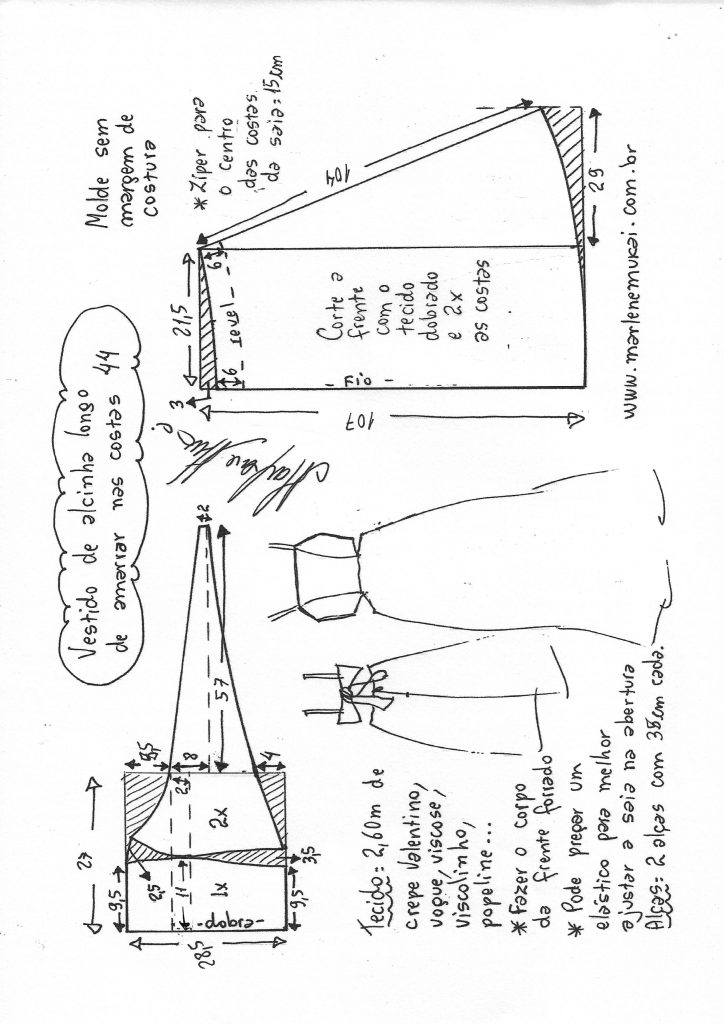 Vestido de alcinha longo
de amarrar nas costas 44
Molde sem
margem de
costura
* Zíper para
o centro
das costas
da saia = 15cm
27
9,5
28,5
9,5
3,5
2,5
11
1x
2x
-dobra-
9,5
8
2
4
57
2
3
21,5
6
6
- revel -
104
Corte a
frente
com o
tecido
dobrado
e 2x
as costas
- Fio -
107
29
Tecido = 2,60m de
crepe Valentino,
voque, viscose,
viscolinho,
popeline...
* Fazer o corpo
da frente forrado
* Pode pregar um
elástico para melhor
ajustar a saia na abertura
Alças = 2 alças com 38cm cada.
www.marlenemukai.com.br